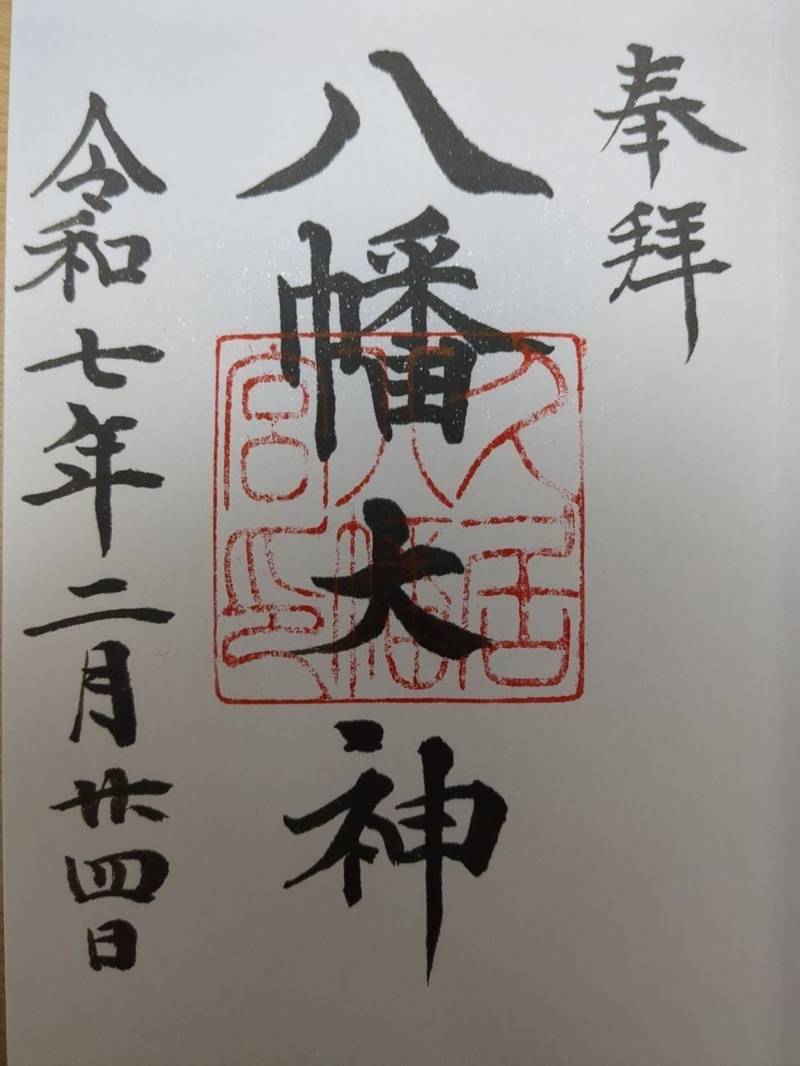 奉拝
八幡大神
久居
八幡
宮印
令和七年二月廿四日